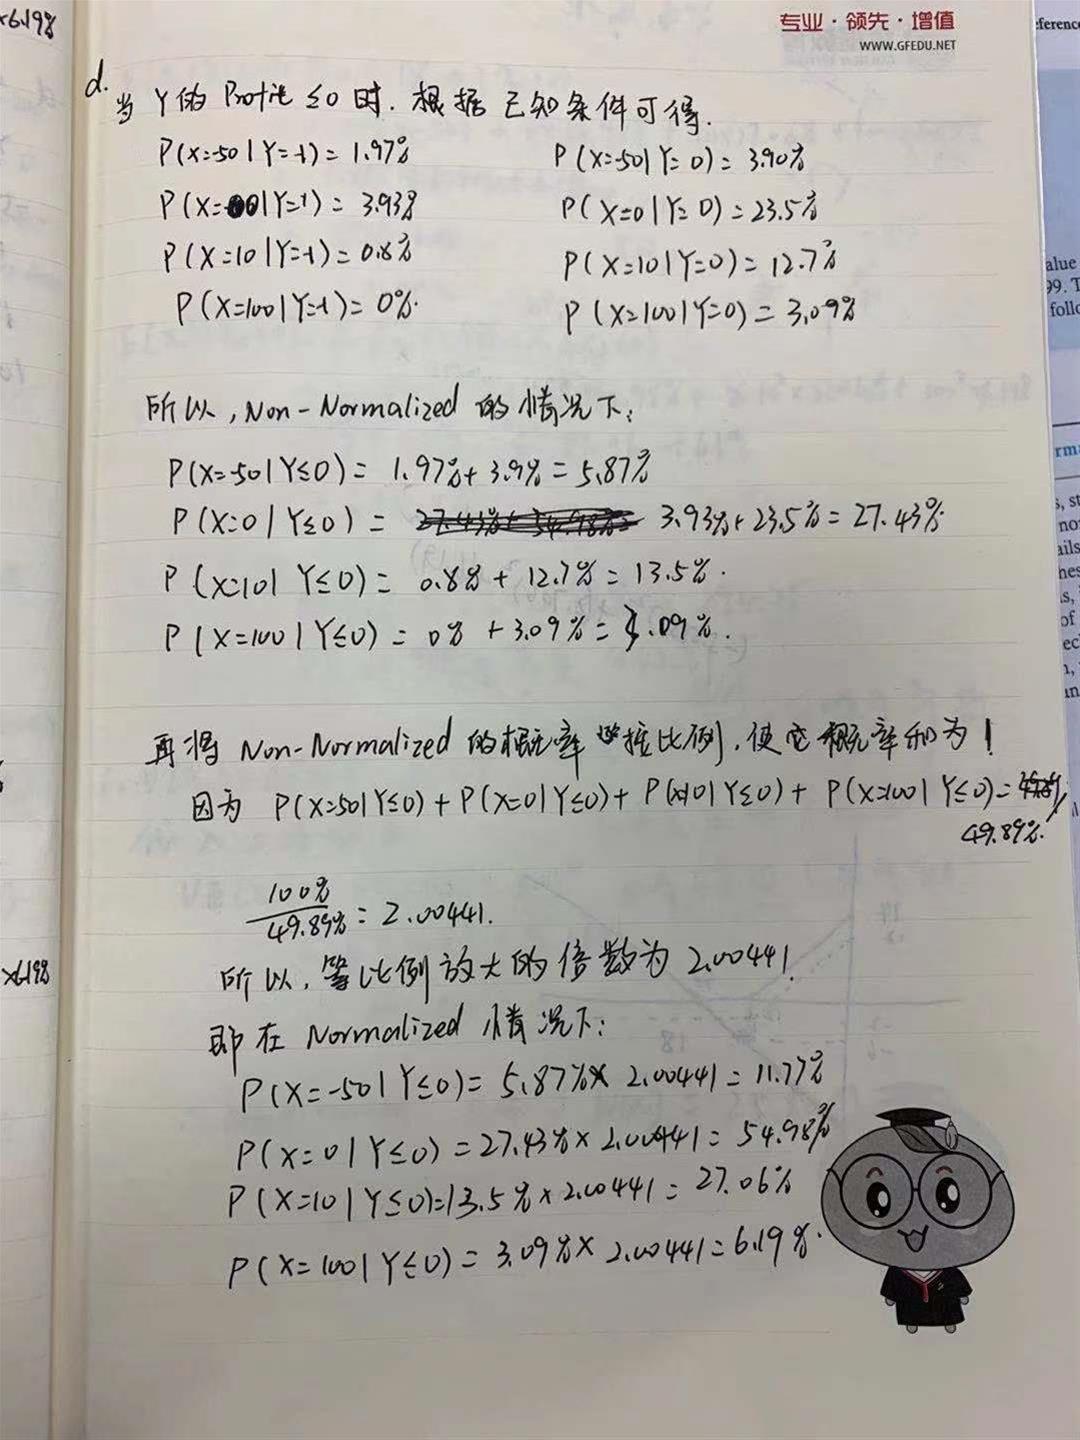 x6.19%
专业·领先·增值
WWW.GFEDU.NET
d.
当 Y的 Profit ≤0 时. 根据已知条件可得.
P(X=-50|Y=-1)=1.97% P(X=-50|Y=0)=3.90%
P(X=0|Y=-1)=3.93% P(X=0|Y=0)=23.5%
P(X=10|Y=-1)=0.8% P(X=10|Y=0)=12.7%
P(X=100|Y=-1)=0%. P(X=100|Y=0)=3.09%
所以,Non-Normalized 的情况下:
P(X=-50|Y≤0)= 1.97%+3.9%=5.87%
P(X=0|Y≤0)= 27.43%+54.98%= 3.93%+23.5%=27.43%
P(X=10|Y≤0)= 0.8%+12.7%=13.5%.
P(X=100|Y≤0)= 0%+3.09%=3.09%.
再将 Non-Normalized 的概率 按比例,使它概率和为1
因为 P(X=50|Y≤0)+P(X=0|Y≤0)+P(X=10|Y≤0)+P(X=100|Y≤0)=
49.89%.
100%/49.89%=2.00441.
所以,等比例放大的倍数为2.00441.
x6.19%
即在 Normalized 情况下:
P(X=-50|Y≤0)=5.87%×2.00441=11.77%
P(X=0|Y≤0)=27.43%×2.00441=54.98%
P(X=10|Y≤0)=13.5%×2.00441=27.06%
P(X=100|Y≤0)=3.09%×2.00441=6.19%.